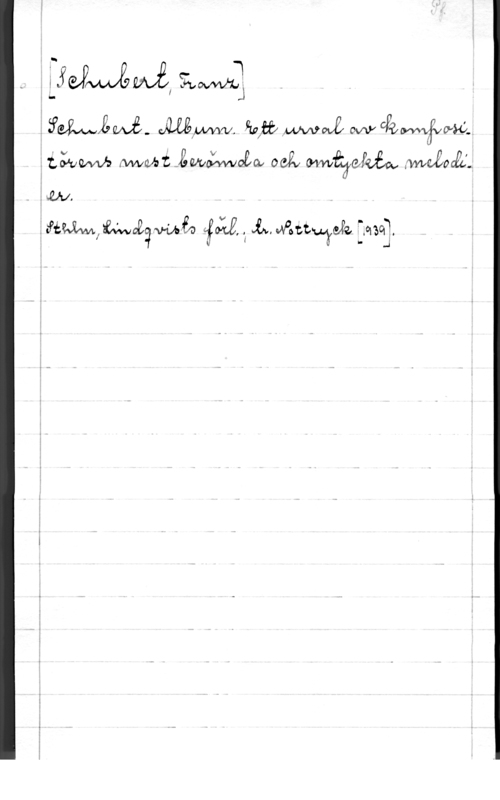 Pf.
[Schubert, Franz]
Schubert-Album. Ett urval av komposi-
törens mest berömda och omtyckta melodi-
er.
Sthlm, Lindqvists förl.; tr. Nottryck [1939].